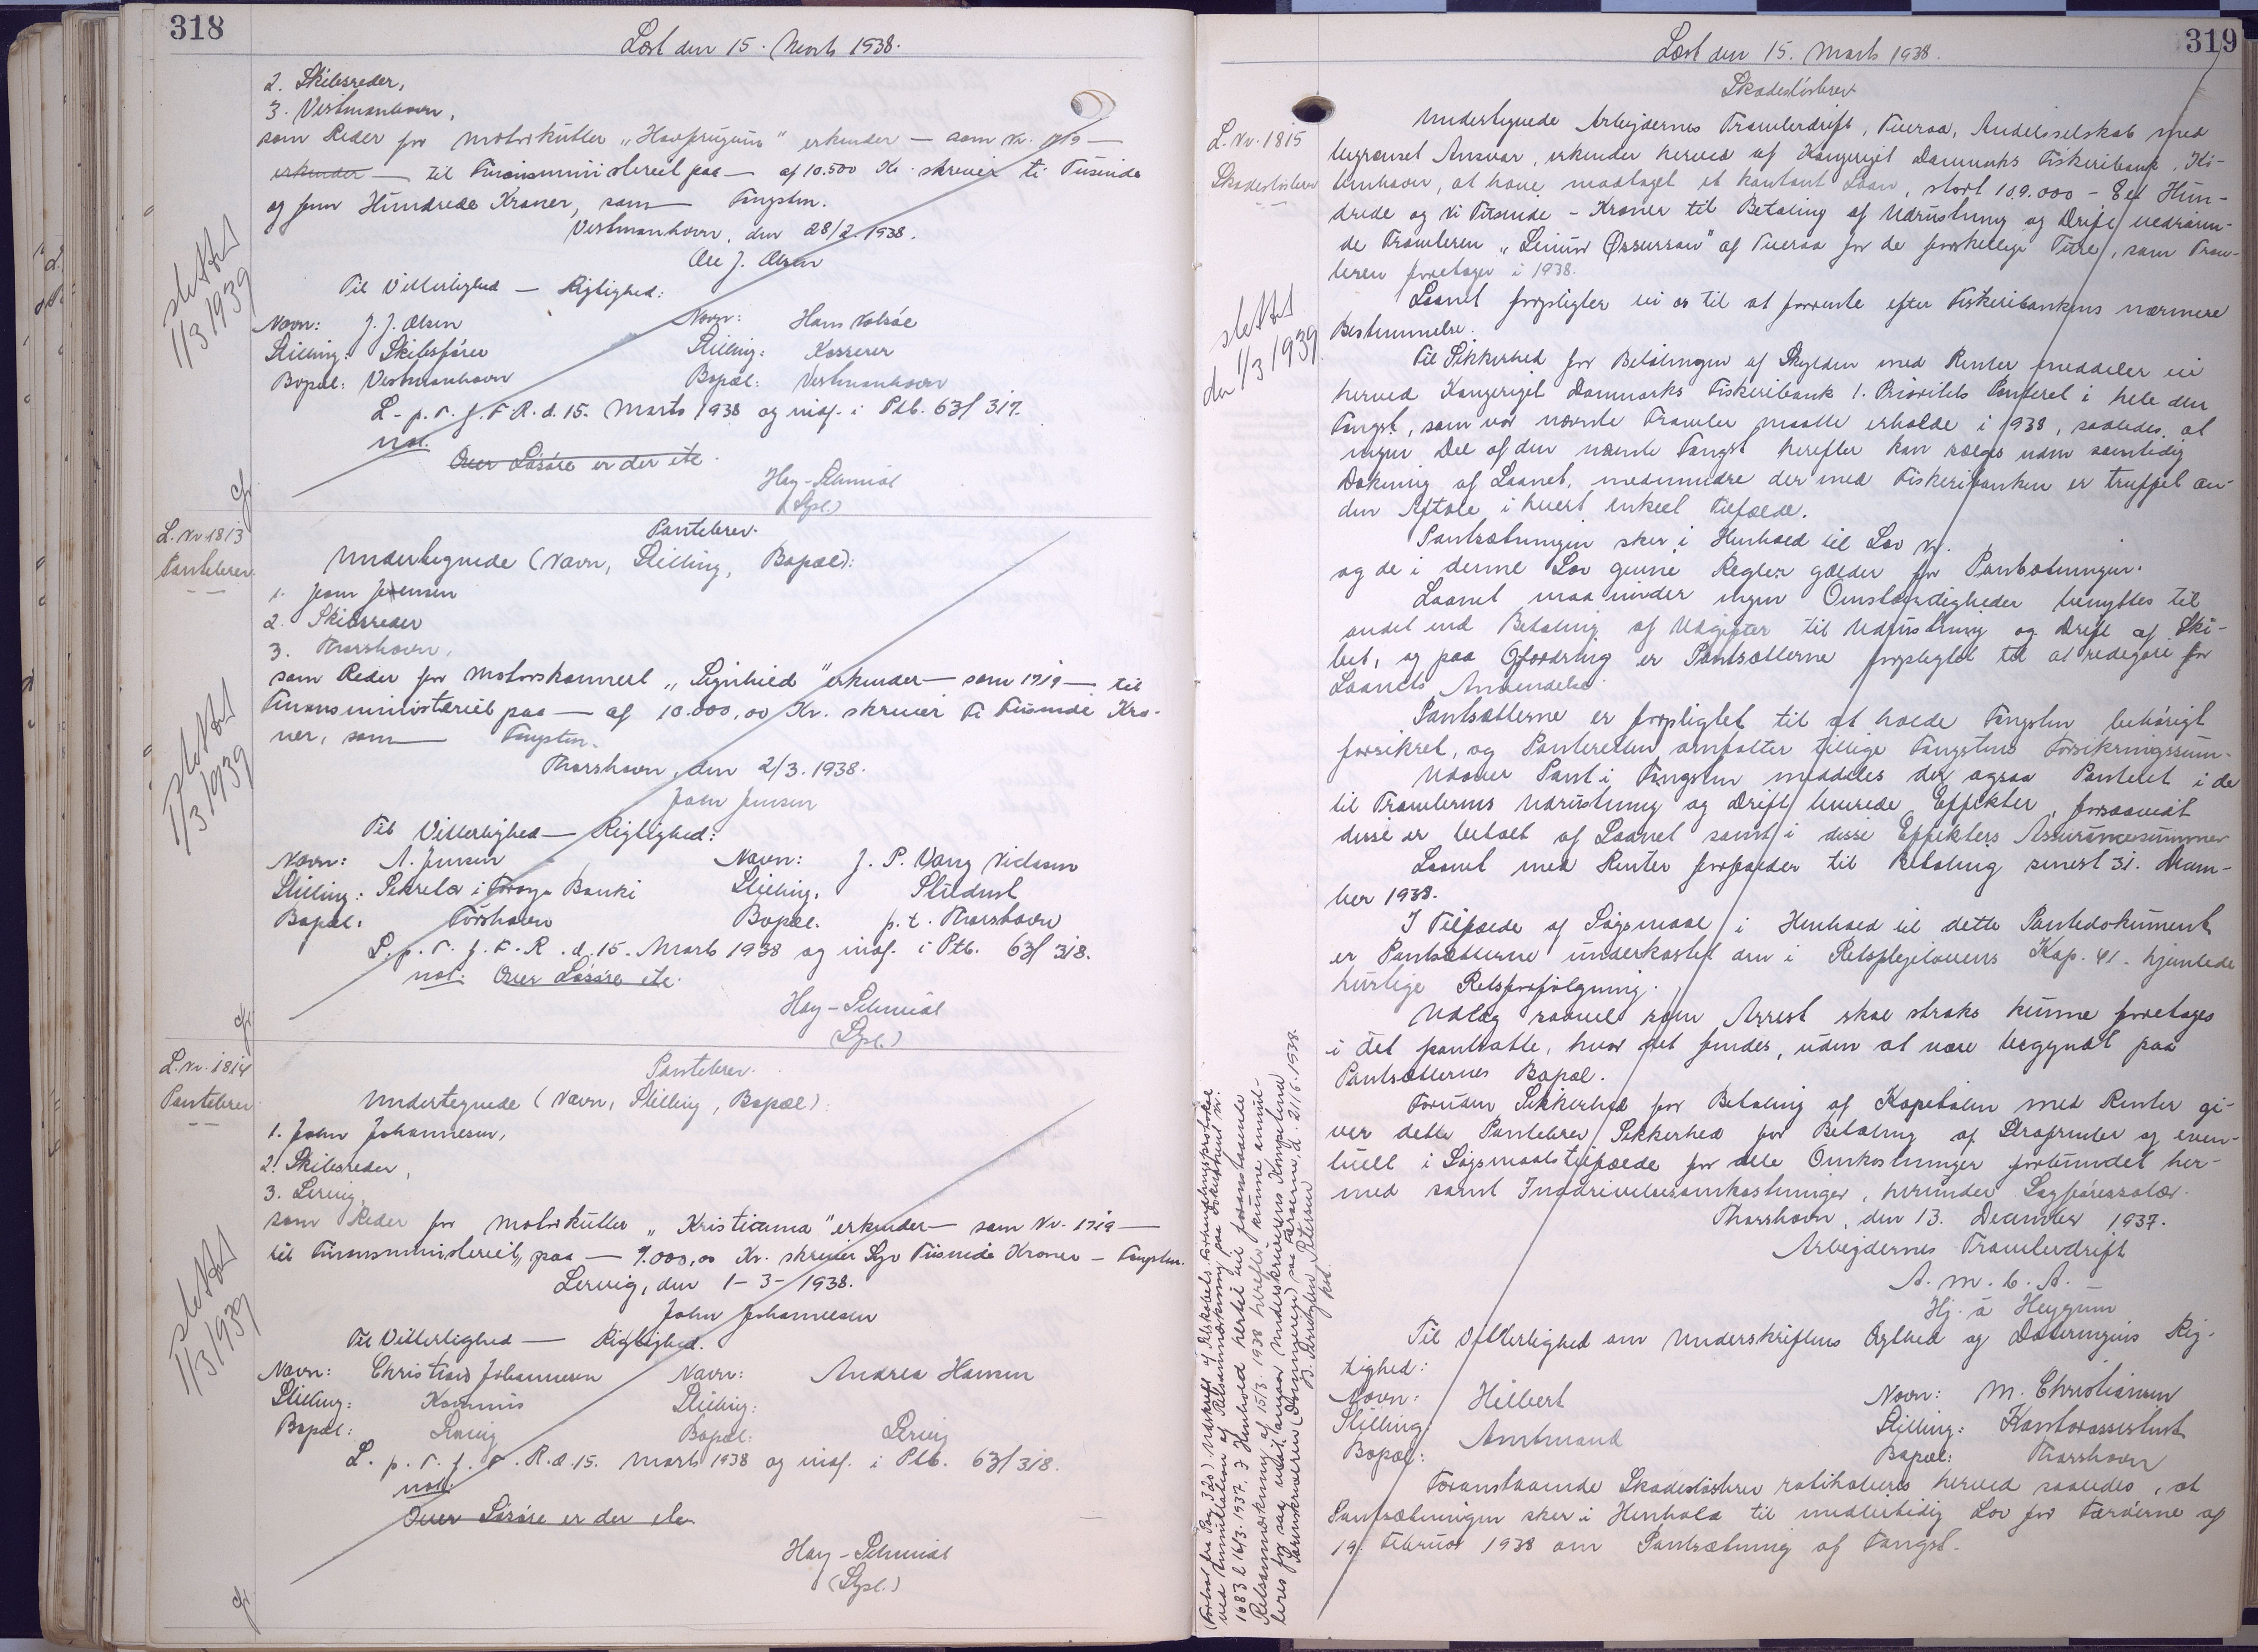 318
Læst den 15. Marts 1938.
2. Skibsreder,
3. Vestmanhavn,
som Reder for Motorkutter "Havfrugvin" erkender — som Nr. 1719 —
erkender — til Finansministeriet paa — af 10.500 Kr. skriver ti Tusinde
og fem Hundrede Kroner, som — Fangsten.
Vestmanhavn, den 28/2 1938.
Ole J. Olsen
Til Vitterlighed — Rigtighed:
Navn: J. J. Olsen Navn: Hans
Stilling: Skibsfører Stilling: Kasserer
Bopæl: Vestmanhavn Bopæl: Vestmanhavn
L. p. T. f. F. R. d. 15. Marts 1938 og indf. i Ptb. 63/317.
not.
Over Løsøre er der etc.
Hay-Schmidt
(Spl.)
slettet
1/3 1939
L. Nr. 1813
Pantebrev
Pantebrev.
Undertegnede (Navn, Stilling, Bopæl):
1. Joen Jensen
2. Skibsreder
3. Thorshavn,
som Reder for Motorskonnert "Signhild" erkender — som 1719 — til
Finansministeriet paa — af 10.000,00 Kr. skriver Ti Tusinde Kro-
ner, som — Fangsten.
Thorshavn, den 2/3. 1938.
John Jensen
Til Vitterlighed — Rigtighed:
Navn: A. Jensen Navn: J. P. Vang
Stilling: Sekretær i Føroya Banki Stilling. Student
Bopæl: Tórshavn Bopæl. p.t. Thorshavn
L. p. T. f. F. R. d. 15. Marts 1938 og indf. i Ptb. 63/318.
not. Over Løsøre etc.
Hay-Schmidt
(Spl.)
slettet
1/3 1939
L. Nr. 1814
Pantebrev
Pantebrev.
Undertegnede (Navn, Stilling, Bopæl):
1. John Johannesen,
2. Skibsreder,
3. Lervig,
som Reder for Motorkutter "Kristianna" erkender — som Nr. 1719 —
til Finansministeriet, paa — 7.000,00 Kr. skriver Syv Tusinde Kroner — Fangsten.
Lervig, den 1-3-1938.
John Johannesen
Til Vitterlighed — Rigtighed.
Navn: Christian Johannesen Navn: Andrea Hansen
Stilling: Stilling:
Bopæl: Lervig Bopæl: Lervig
L. p. T. f. F. R. d. 15. Marts 1938 og indf. i Ptb. 63/318.
not.
Over Løsøre er der etc.
Hay-Schmidt
(Spl.)
slettet
1/3 1939
319
Læst den 15. Marts 1938.
L. Nr. 1815
Skadesløsbrev
Skadesløsbrev
Undertegnede Arbejdernes Trawlerdrift, Tveraa, Andelsselskab med
begrænset Ansvar, erkender herved af Kongeriget Danmarks Fiskeribank, Kø-
benhavn, at have modtaget et kontant Laan, stort 109.000 - Eet Hun-
drede og Ni Tusinde - Kroner til Betaling af Udrustning og Drift vedrøren-
de Trawleren "Leivur Øssursson" af Tveraa for de forskellige Ture, som Traw-
leren foretager i 1938.
Laanet forpligter vi os til at forrente efter Fiskeribankens nærmere
Bestemmelse.
Til Sikkerhed for Betalingen af Skylden med Renter meddeler vi
herved Kongeriget Danmarks Fiskeribank 1. Prioritets Panteret i hele den
Fangst, som vor nævnte Trawler maatte erholde i 1938, saaledes, at
ingen Del af den nævnte Fangst herefter kan sælges uden samtidig
Dækning af Laanet, medmindre der med Fiskeribanken er truffet an-
den Aftale i hvert enkelt Tilfælde.
Pantsætningen sker i Henhold til Lov Nr.
og de i denne Lov givne Regler gælder for Pantsætningen.
Laanet maa under ingen Omstændigheder benyttes til
andet end Betaling af Udgifter til Udrustning og Drift af Ski-
bet, og paa Opfordring er Pantsætterne forpligtet til at redegøre for
Laanets Anvendelse.
Pantsætterne er forpligtet til at holde Fangsten behørigt
forsikret, og Panteretten omfatter tillige Fangstens Forsikringssum.
Udover Pant i Fangsten meddeles der ogsaa Panteret i de
til Trawlerens Udrustning og Drift leverede Effekter, forsaavidt
disse er betalt af Laanet samt i disse Effekters Assurancesummer
Laanet med Renter forfalder til Betaling senest 31. Decem-
ber 1938.
I Tilfælde af Søgsmaal i Henhold til dette Pantedokument
er Pantsætterne underkastet den i Retsplejelovens Kap. 41. hjemlede
hurtige Retsforfølgning.
Udlæg saavel som Arrest skal straks kunne foretages
i det pantsatte, hvor det findes, uden at være begyndt paa
Pantsætternes Bopæl.
Foruden Sikkerhed for Betaling af Kapitalen med Renter gi-
ver dette Pantebrev Sikkerhed for Betaling af Strafrenter og even-
tuelt i Søgsmaalstilfælde for alle Omkostninger forbundet her-
med samt Inddrivelsesomkostninger, herunder Sagførersalær.
Thorshavn, den 13. December 1937.
Arbejdernes Trawlerdrift
A. m. b. A.
Hj. á Heygum
Til Vitterlighed om Underskriftens Ægthed og Dateringens Rig-
tighed:
Navn: Hilbert Navn: M. Christiansen
Stilling: Amtmand Stilling: Kontorassistent
Bopæl: Bopæl: Thorshavn
Foranstaaende Skadesløsbrev ratihaberes herved saaledes, at
Pantsætningen sker i Henhold til midlertidig Lov for Færøerne af
19. Februar 1938 om Pantsætning af Fangst.
slettet
den 1/3 1939
(Fortsat fra Pag. 320) Udskrift af Selskabets Forhandlingsprotokol